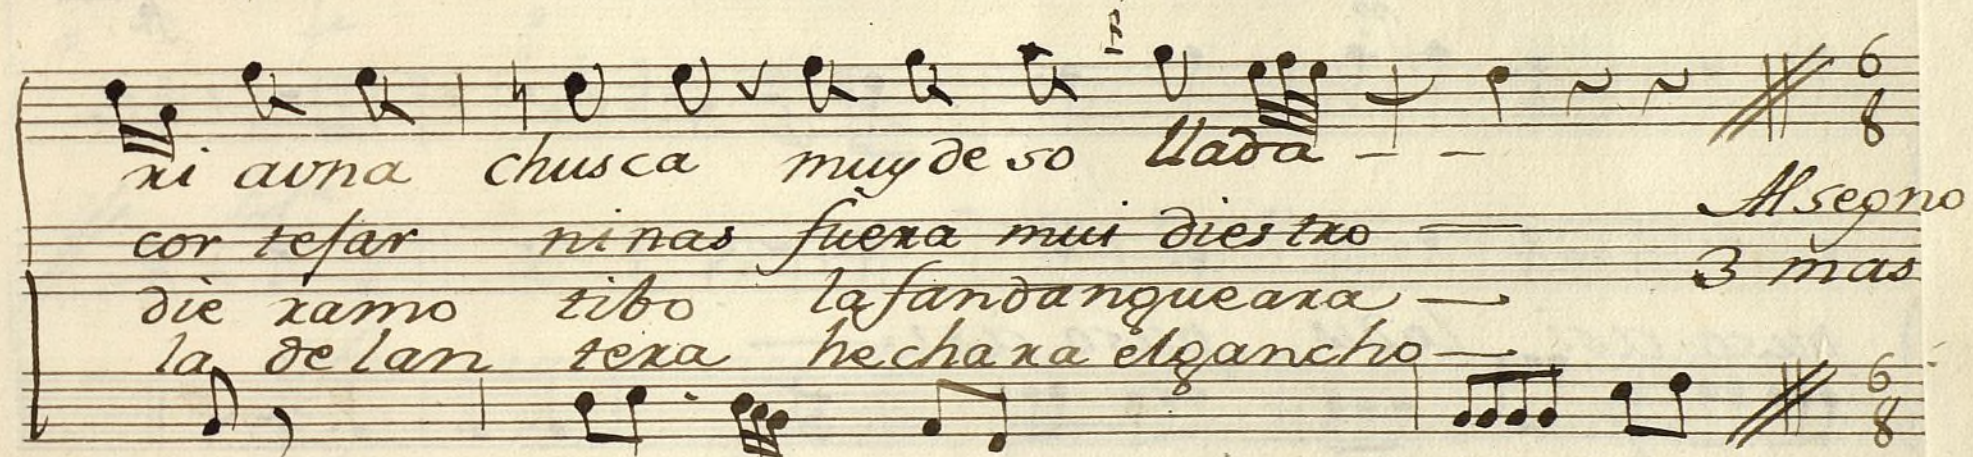 6
8
ri auna chusca muy de so llada - -
Al segno
cor tesar ninas fuera mui diestro —
3 mas
die ramo tibo la fandangueara —
la delan tera hechara el gancho —
6
8